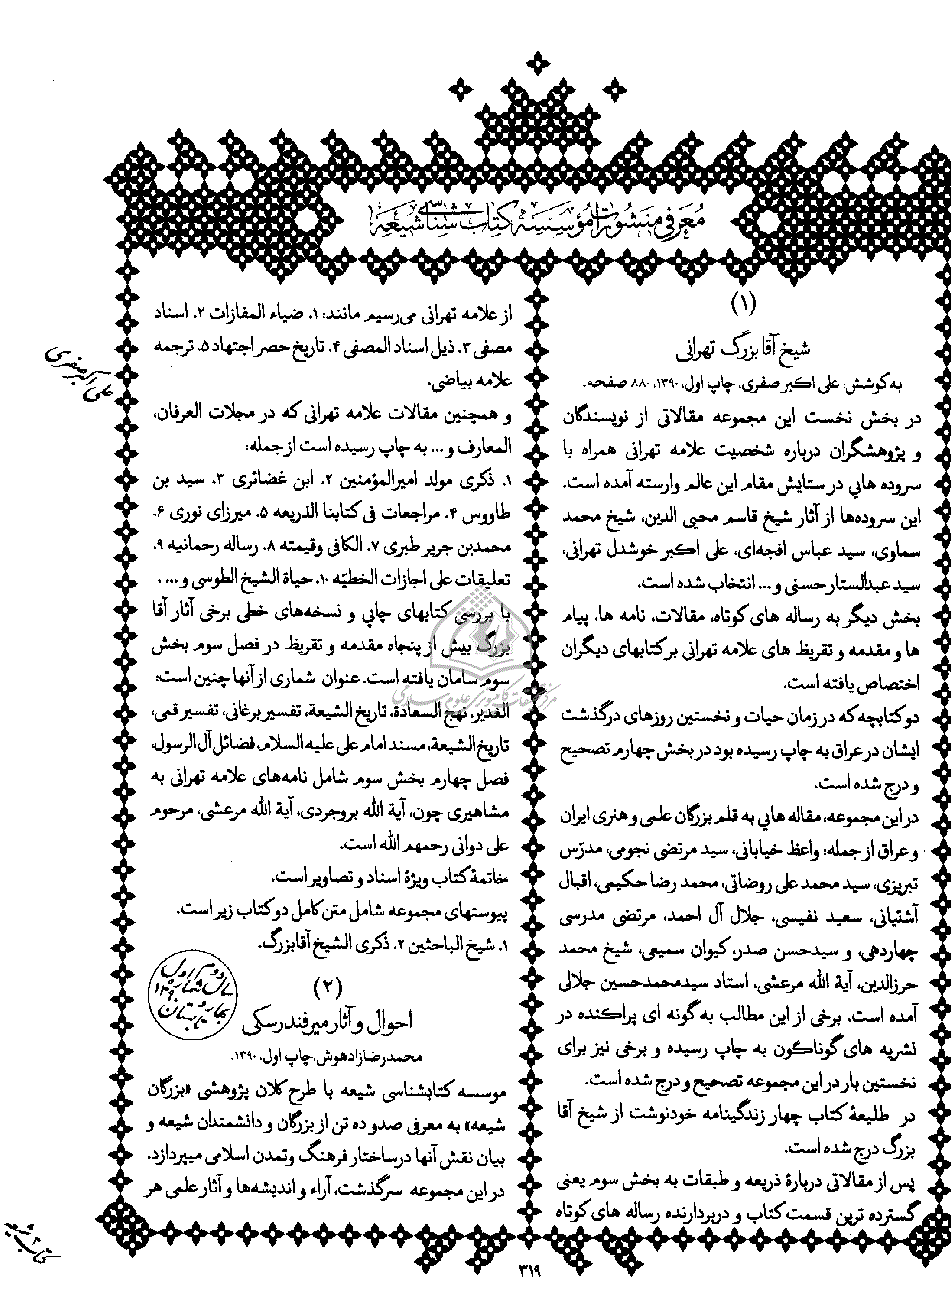 معرفی منشورات مؤسسه کتاب‌شناسی شیعه
(۱)
شیخ آقا بزرگ تهرانی
به کوشش: علی اکبر صفری، چاپ اول، ۱۳۹۰، ۸۸۰ صفحه.
در بخش نخست این مجموعه مقالاتی از نویسندگان
و پژوهشگران درباره شخصیت علامه تهرانی همراه با
سروده هایی در ستایش مقام این عالم وارسته آمده است.
این سروده‌ها از آثار شیخ قاسم محیی الدین، شیخ محمد
سماوی، سید عباس افجه‌ای، علی اکبر خوشدل تهرانی،
سید عبدالستار حسنی و... انتخاب شده است.
بخش دیگر به رساله های کوتاه، مقالات، نامه ها، پیام
ها و مقدمه و تقریظ های علامه تهرانی بر کتابهای دیگران
اختصاص یافته است.
دو کتابچه که در زمان حیات و نخستین روزهای درگذشت
ایشان در عراق به چاپ رسیده بود در بخش چهارم تصحیح
و درج شده است.
در این مجموعه، مقاله هایی به قلم بزرگان علمی و هنری ایران
و عراق از جمله: واعظ خیابانی، سید مرتضی نجومی، مدرّس
تبریزی، سید محمد علی روضاتی، محمد رضا حکیمی، اقبال
آشتیانی، سعید نفیسی، جلال آل احمد، مرتضی مدرسی
چهاردهی، و سیدحسن صدر، کیوان سمیعی، شیخ محمد
حرزالدین، آیة الله مرعشی، استاد سیدمحمدحسین جلالی
آمده است. برخی از این مطالب به گونه ای پراکنده در
نشریه های گوناگون به چاپ رسیده و برخی نیز برای
نخستین بار در این مجموعه تصحیح و درج شده است.
در طلیعهٔ کتاب چهار زندگینامه خودنوشت از شیخ آقا
بزرگ درج شده است.
پس از مقالاتی دربارهٔ ذریعه و طبقات به بخش سوم یعنی
گسترده ترین قسمت کتاب و دربردارنده رساله های کوتاه
از علامه تهرانی می‌رسیم مانند: ۱. ضیاء المفازات ۲. اسناد
مصفی ۳. ذیل اسناد المصفی ۴. تاریخ حصر اجتهاد ۵. ترجمه
علامه بیاضی.
و همچنین مقالات علامه تهرانی که در مجلات العرفان،
المعارف و... به چاپ رسیده است از جمله:
۱. ذکری مولد امیرالمؤمنین ۲. ابن غضائری ۳. سید بن
طاووس ۴. مراجعات فی کتابنا الذریعه ۵. میرزای نوری ۶.
محمدبن جریر طبری ۷. الکافی وقیمته ۸. رساله رحمانیه ۹.
تعلیقات علی اجازات الخطیّه ۱۰. حیاة الشیخ الطوسی و....
با بررسی کتابهای چاپی و نسخه‌های خطی برخی آثار آقا
بزرگ بیش از پنجاه مقدمه و تقریظ در فصل سوم بخش
سوم سامان یافته است. عنوان شماری از آنها چنین است:
الغدیر، نهج السعادة، تاریخ الشیعة، تفسیر برغانی، تفسیر قمی،
تاریخ الشیعة، مسند امام علی علیه السلام، فضائل آل الرسول،
فصل چهارم بخش سوم شامل نامه‌های علامه تهرانی به
مشاهیری چون، آیة الله بروجردی، آیة الله مرعشی، مرحوم
علی دوانی رحمهم الله است.
خاتمهٔ کتاب ویژهٔ اسناد و تصاویر است.
پیوستهای مجموعه شامل متن کامل دو کتاب زیر است.
۱. شیخ الباحثین ۲. ذکری الشیخ آقابزرگ.
(۲)
احوال و آثار میرفندرسکی
محمدرضا زادهوش، چاپ اول، ۱۳۹۰.
موسسه کتابشناسی شیعه با طرح کلان پژوهشی «بزرگان
شیعه» به معرفی صد و ده تن از بزرگان و دانشمندان شیعه و
بیان نقش آنها در ساختار فرهنگ و تمدن اسلامی میپردازد.
در این مجموعه سرگذشت، آراء و اندیشه‌ها و آثار علمی هر
علی اکبر صفری
سال دوم شماره اول
بهار و تابستان ۱۳۹۰
کتاب شیعه
۳۱۹